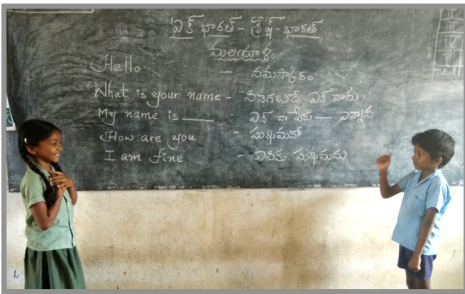 'ఏక్ భారత్ - శ్రేష్ఠ - భారత్
మలయాళం
Hello - నమస్కారం
What is your name -
My name is ____ ఎన్నాన
How are you - సుఖమనో
I am fine - ఎనికు సుఖమను